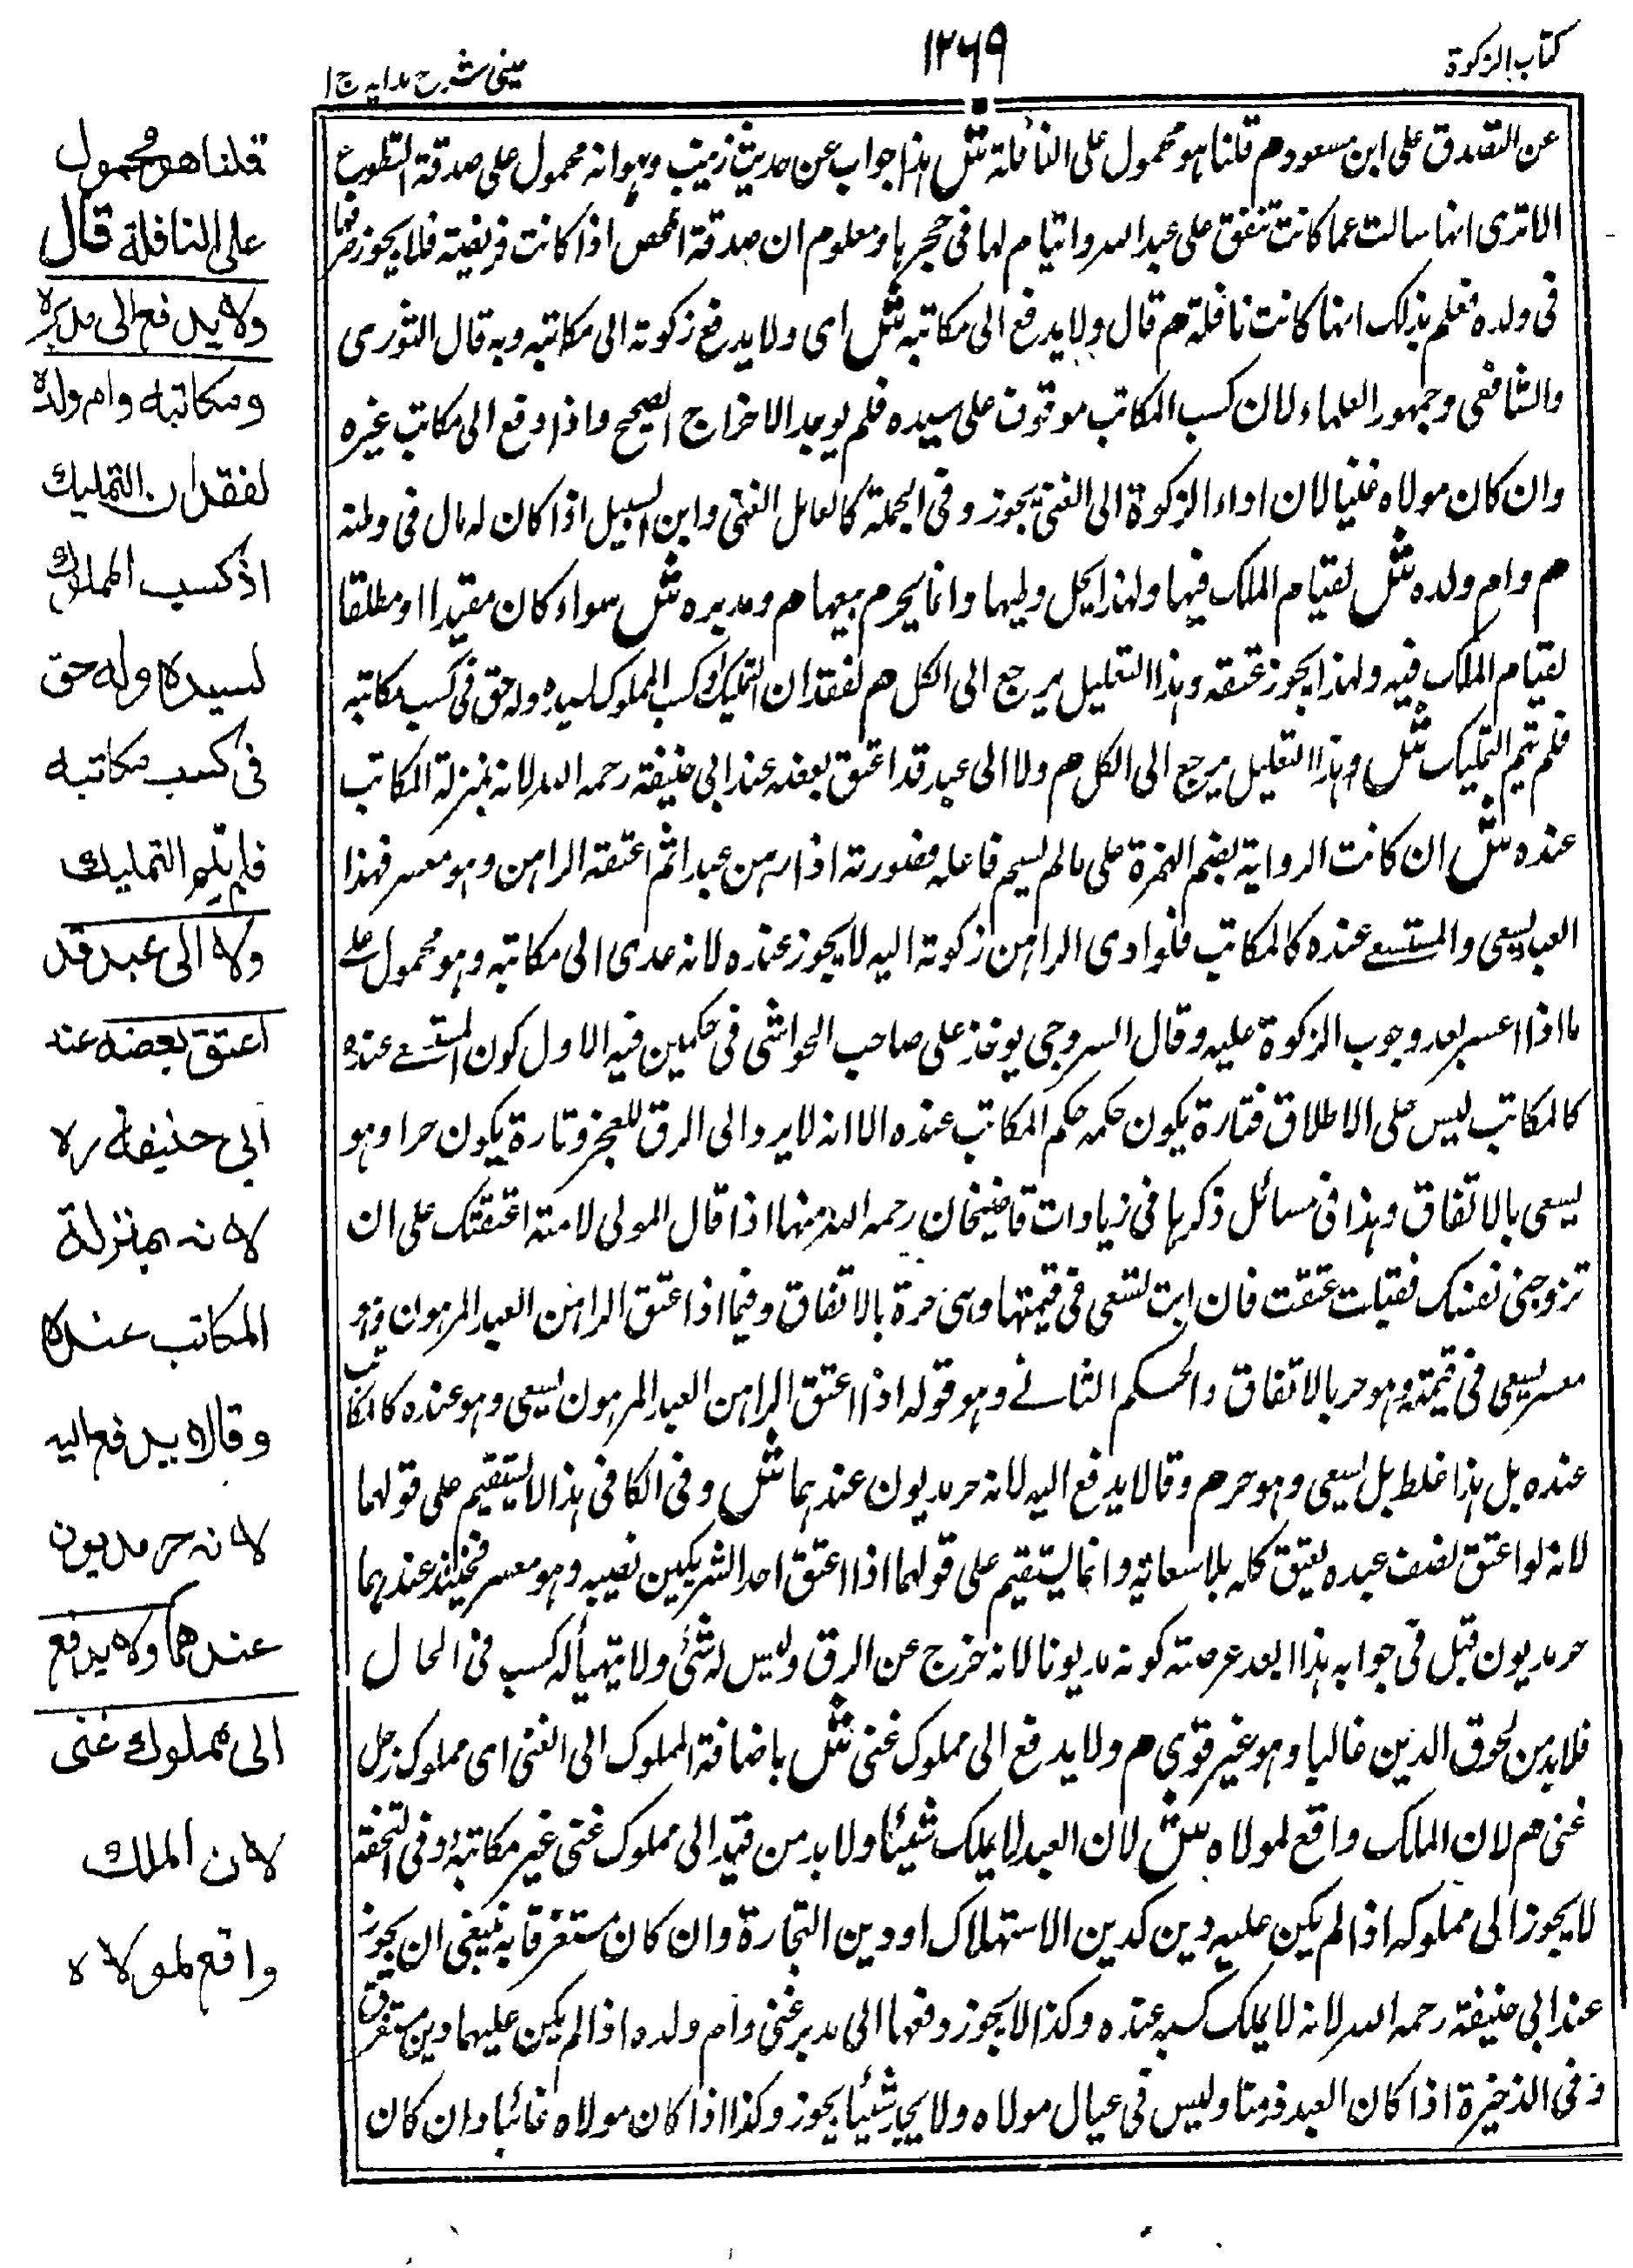 كتاب الزكوة
١٢٦٩
عينى شرح هدايه ج ١
عن التصدق على ابن مسعود م قلنا هو محمول على النافلة ش هذا جواب عن حديث زينب وهو انه محمول على صدقة التطوع
الا ترى انها سالت عما كانت تنفق على عبد الله وايتام لها فى حجرها ومعلوم ان صدقة المحض اذا كانت فريضة فلا يجوز صرفها
فى ولده فعلم بذلك انها كانت نافلة م قال ولا يدفع الى مكاتبه ش اى ولا يدفع زكوته الى مكاتبه وبه قال الثورى
والشافعى وجمهور العلماء لان كسب المكاتب موقوف على سيده فلم يوجد الاخراج الصحيح واذا دفع الى مكاتب غيره
وان كان مولاه غنيا لان اداء الزكوة الى الغنى يجوز وفى الجملة كالعامل الغنى وابن السبيل اذا كان له مال فى وطنه
م وام ولده ش لقيام الملك فيها ولهذا يحل وطيها وانما يحرم بيعها م ومدبره ش سواء كان مقيدا او مطلقا
لقيام الملك فيه ولهذا يجوز عتقه وهذا التعليل يرجع الى الكل م لفقدان التمليك اذ كسب المملوك لسيده وله حق فى كسب مكاتبه
فلم يتم التمليك ش وهذا التعليل يرجع الى الكل م ولا الى عبد قد اعتق بعضه عند ابى حنيفة رحمه الله لانه بمنزلة المكاتب
عنده ش ان كانت الرواية بضم الهمزة على ما لم يسم فاعله فصورته اذا رهن عبدا ثم اعتقه الراهن وهو معسر فهذا
العبد يسعى والمستسعى عنده كالمكاتب فلو ادى الراهن زكوته اليه لا يجوز عنده لانه مدى الى مكاتبه وهو محمول على
ما اذا اعسر بعد وجوب الزكوة عليه وقال السروجى يوخذ على صاحب الحواشى فى حكمين فيه الاول كون المستسعى عنده
كالمكاتب ليس على الاطلاق فتارة يكون حكمه حكم المكاتب عنده الا انه لا يرد الى الرق للعجز وتارة يكون حرا وهو
يسعى بالاتفاق وهذا فى مسائل ذكرها فى زيادات قاضيخان رحمه الله منها اذا قال المولى لامته اعتقتك على ان
تزوجنى نفسك فقبلت عتقت فان ابت تسعى فى قيمتها وهى حرة بالاتفاق وفيما اذا اعتق الراهن العبد المرهون وهو
معسر يسعى فى قيمته وهو حر بالاتفاق والحكم الثانى وهو قوله اذا اعتق الراهن العبد المرهون يسعى وهو عنده كالمكاتب
عنده بل هذا غلط بل يسعى وهو حر م وقالا يدفع اليه لانه حر مديون عندهما ش وفى الكافى هذا لا يستقيم على قولهما
لانه لو اعتق نصف عبده يعتق كله بلا سعاية وانما يستقيم على قولهما اذا اعتق احد الشريكين نصيبه وهو معسر فحينئذ عندهما
حر مديون قيل فى جوابه هذا ابعد عرضته كونه مديونا لانه خرج عن الرق وليس له شئ ولا يتهيأ له كسب فى الحال
فلا بد من لحوق الدين غالبا وهو غير قوى م ولا يدفع الى مملوك غنى ش باضافة المملوك الى الغنى اى مملوك رجل
غنى م لان الملك واقع لمولاه ش لان العبد لا يملك شيئا ولا بد من قيد الى مملوك غنى غير مكاتبه وفى التحفة
لا يجوز الى مملوكه اذا لم يكن عليه دين كدين الاستهلاك او دين التجارة وان كان مستغرقا به ينبغى ان يجوز
عند ابى حنيفة رحمه الله لانه لا يملك كسبه عنده وكذا لا يجوز دفعها الى مدبر غنى وام ولده اذا لم يكن عليهما دين مستغرق
وفى الذخيرة اذا كان العبد زمنا وليس فى عيال مولاه ولا يجد شيئا يجوز وكذا اذا كان مولاه غائبا وان كان
قلنا هو محمول
على النافلة قال
ولا يدفع الى مدبره
ومكاتبه وام ولده
لفقدان التمليك
اذ كسب المملوك
لسيده وله حق
فى كسب مكاتبه
فلم يتم التمليك
ولا الى عبد قد
اعتق بعضه عند
ابى حنيفة ره
لانه بمنزلة
المكاتب عنده
وقالا يدفع اليه
لانه حر مديون
عندهما ولا يدفع
الى مملوك غنى
لان الملك
واقع لمولاه